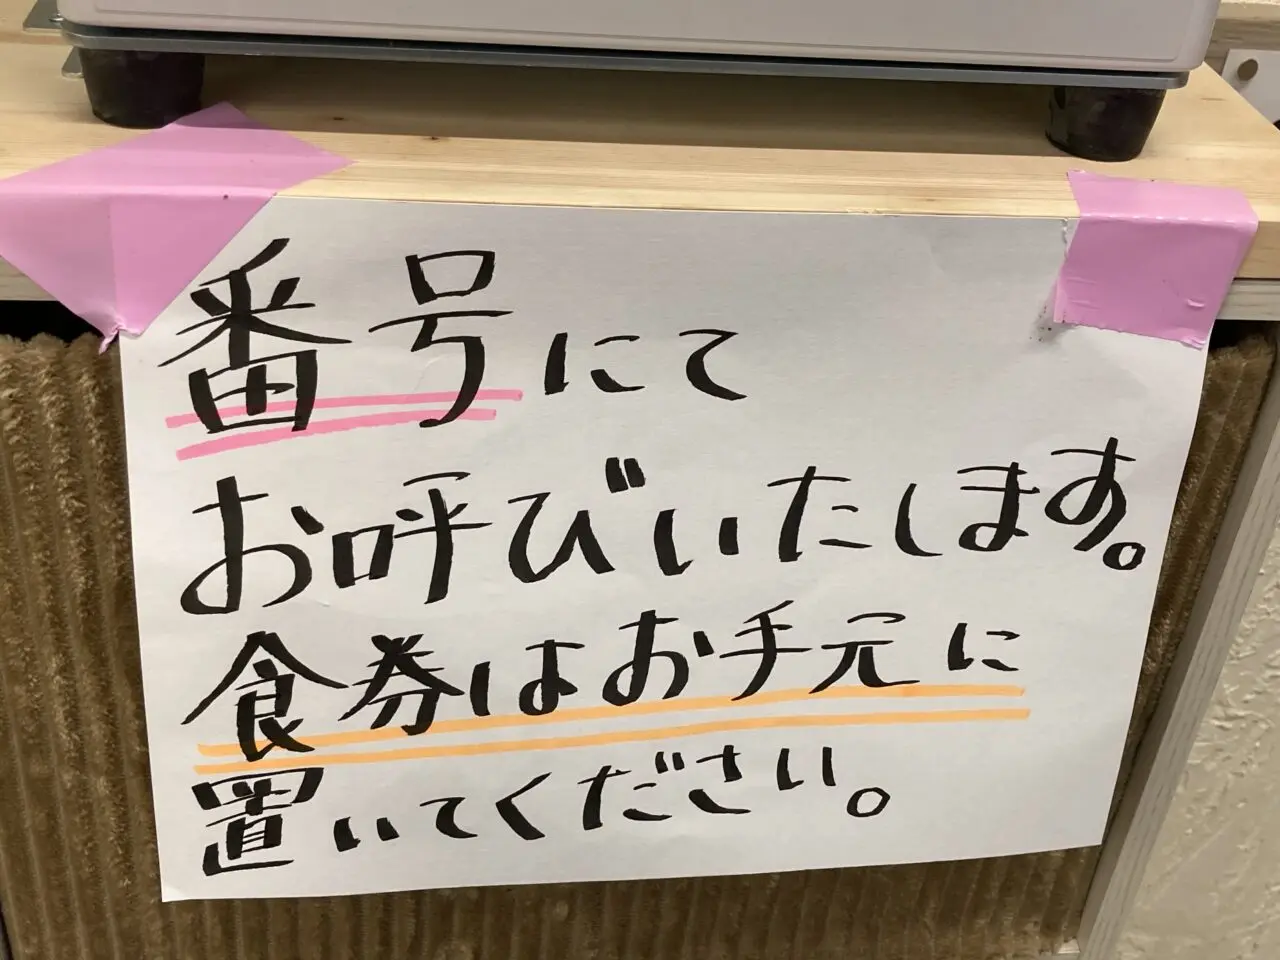 番号にて
お呼びいたします。
食券はお手元に
置いてください。